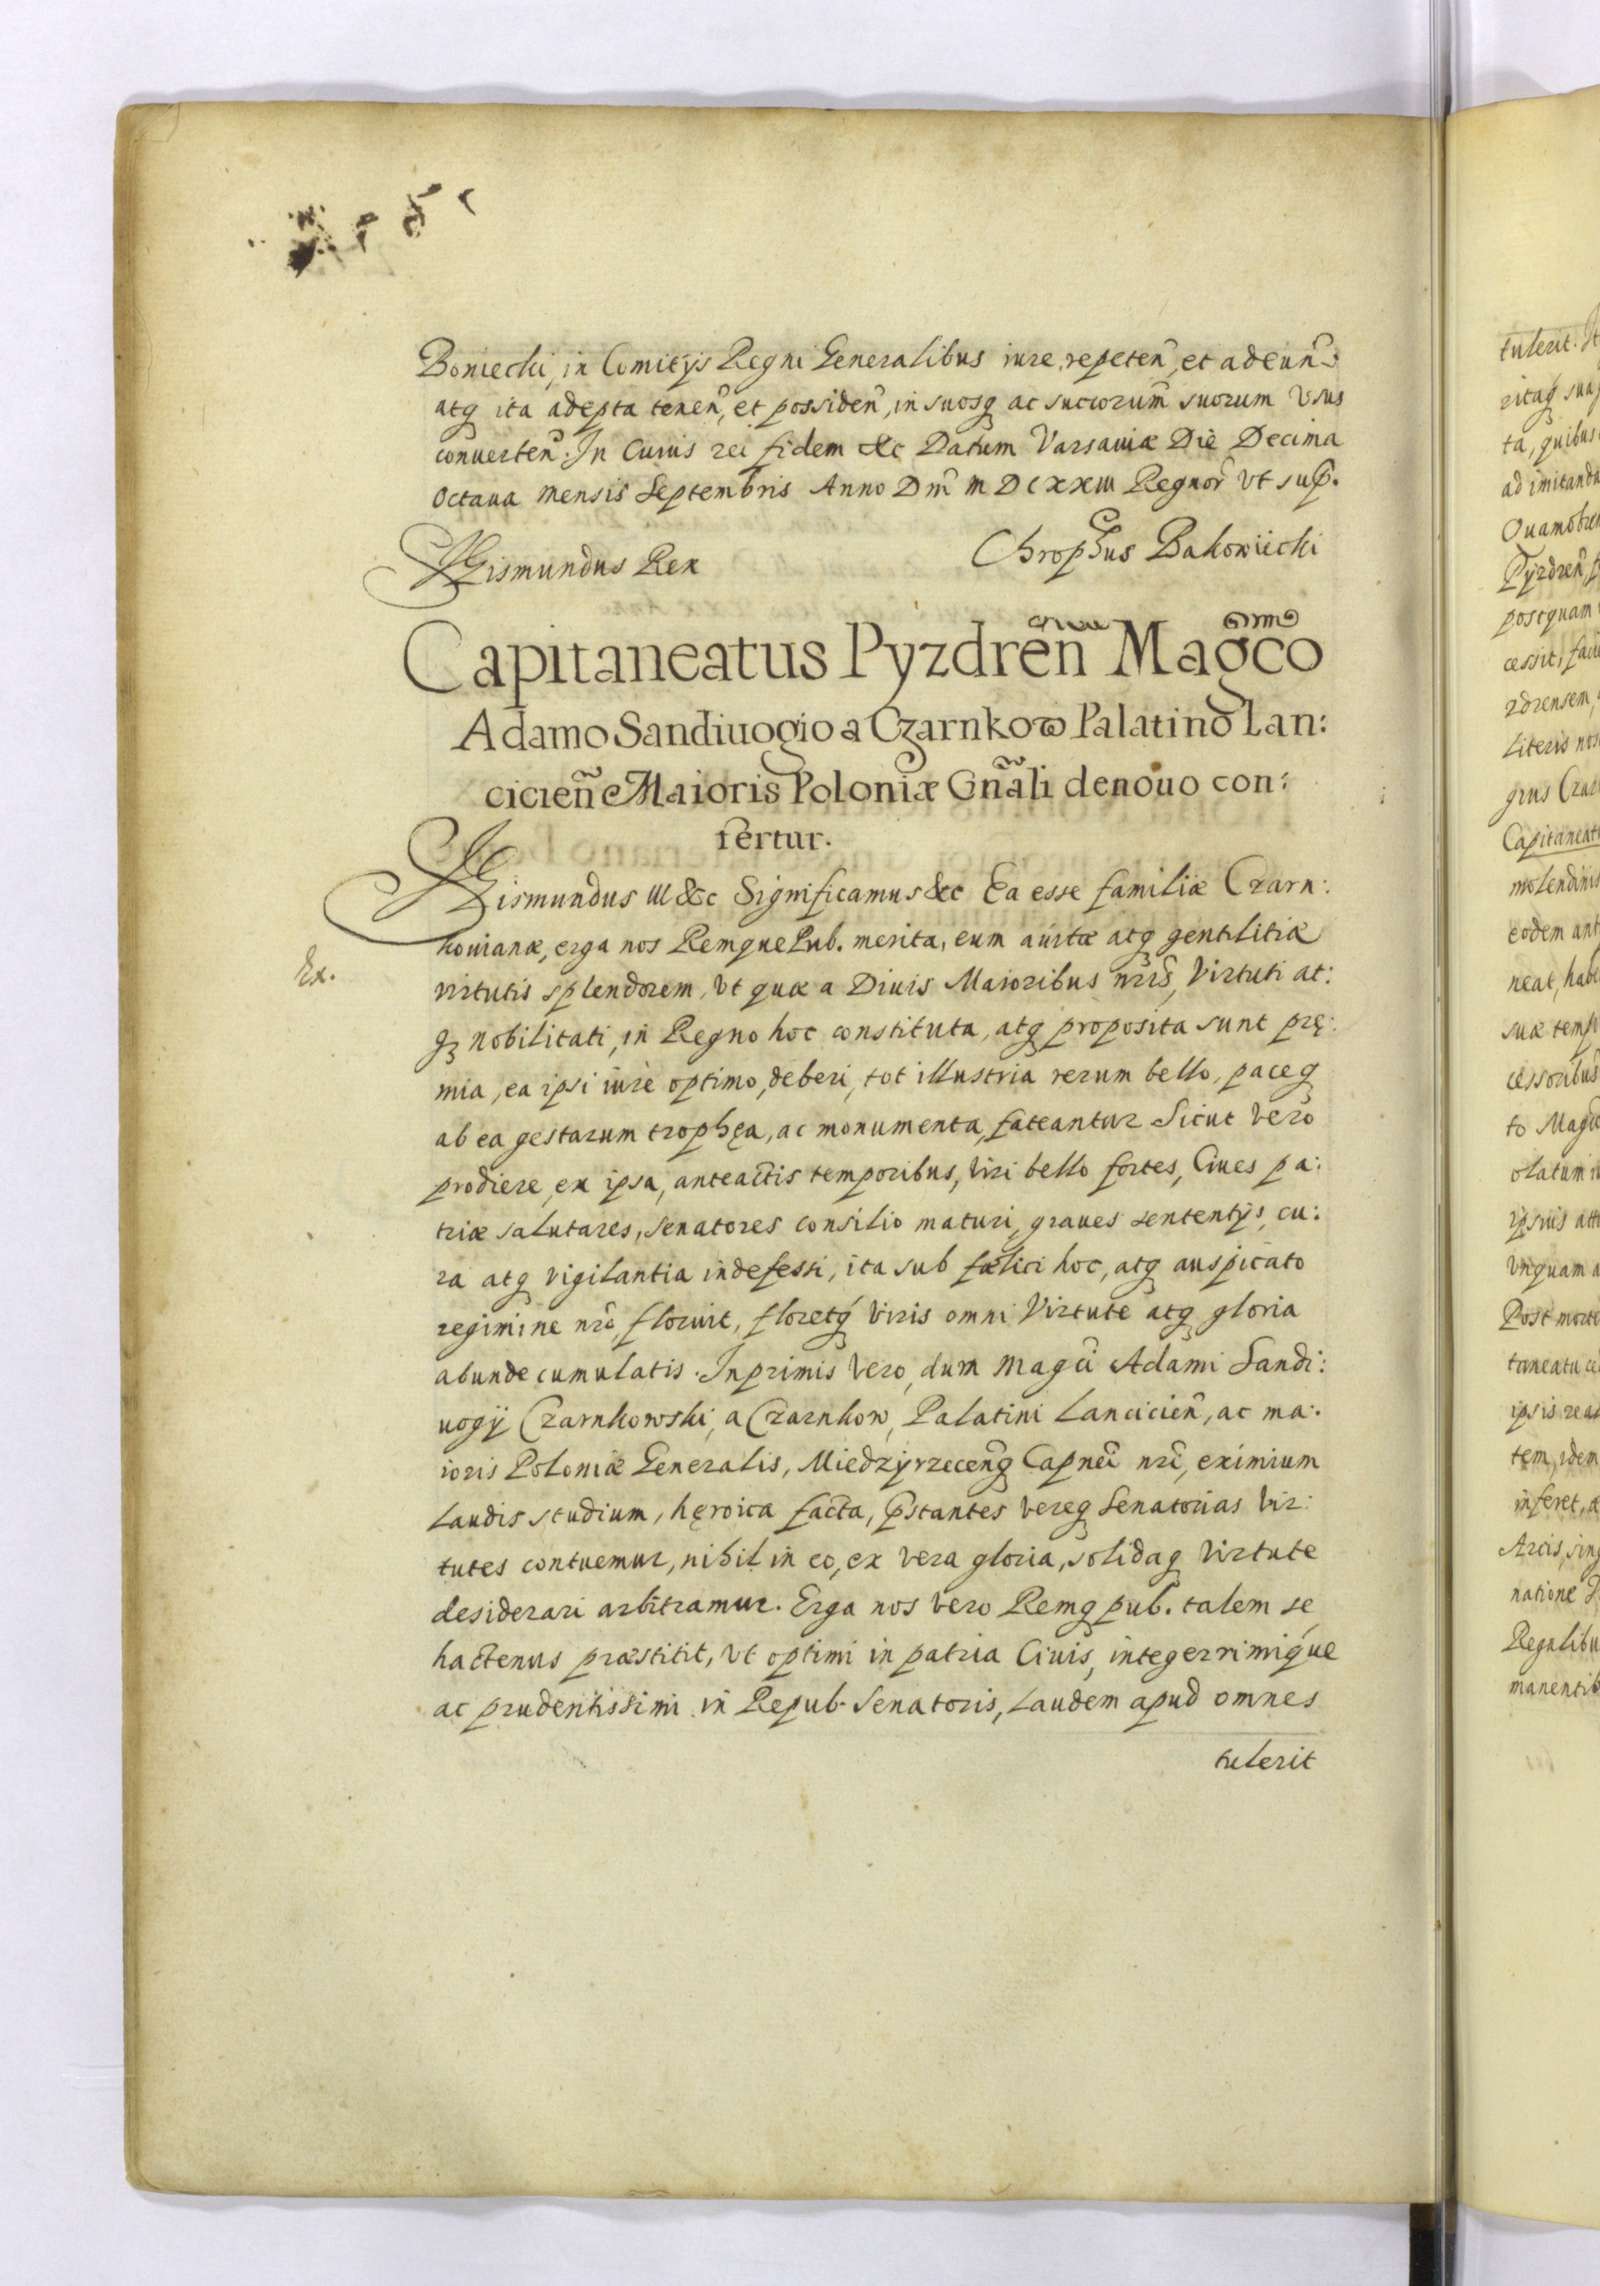 Boniecki, in Comitijs Regni Generalibus iure, repeten̄, et adeun̄:
atq ita adepta tenen̄, et possiden̄, in suosq ac succorum̄ suorum Usus
conuerten̄. In Cuius rei fidem &c Datum Varsauiæ Die Decima
Octaua mensis Septembris Anno Dnī MDCXXIII Regnor̄ Ut sup̄.
Sigismundus Rex
Chroph̄us Bakowiecki
Capitaneatus Pyzdren̄ Magco
Adamo Sandiuogio a Czarnkow Palatino Lan:
cicien̄ Maioris Poloniæ Gn̄ali denouo con:
fertur.
Sigismundus III &c Significamus &c Ea esse familiæ Czarn:
kouianæ, erga nos RemquePub. merita, eum auitæ atq gentilitiæ
virtutis splendorem, Ut quæ a Diuis Maioribus nr̄is, Virtuti at:
q nobilitati, in Regno hoc constituta, atq proposita sunt prę:
mia, ea ipsi iure optimo, deberi, tot illustria rerum bello, paceq
ab ea gestarum trophęa, ac monumenta, fateantur Sicut Vero
prodiere, ex ipsa, anteactis temporibus, Viri bello fortes, Ciues pa:
triæ salutares, Senatores consilio maturi, graues sententijs, cu:
ra atq vigilantia indefessi, ita sub fælici hoc, atq auspicato
regimine nr̄o, floruit, floretq Viris omni Virtute atq gloria
abunde cumulatis. Inprimis Vero, dum Magci Adami Sandi:
uogij Czarnkowski, a Czarnkow, Palatini Lancicien̄, ac ma:
ioris Poloniæ Generalis, Miedzyrzecenq̄ Capnei nr̄i, eximium
Laudis studium, hęroica facta, p̄stantes Vereq Senatorias Vir:
tutes contuemur, nihil in eo, ex Vera gloria, solidaq Virtute
desiderari arbitramur. Erga nos Vero Remq pub. talem se
hactenus præstitit, Ut optimi in patria Ciuis, integerrimique
ac prudentissimi in Repub. Senatoris, Laudem apud omnes
tulerit
Ex.